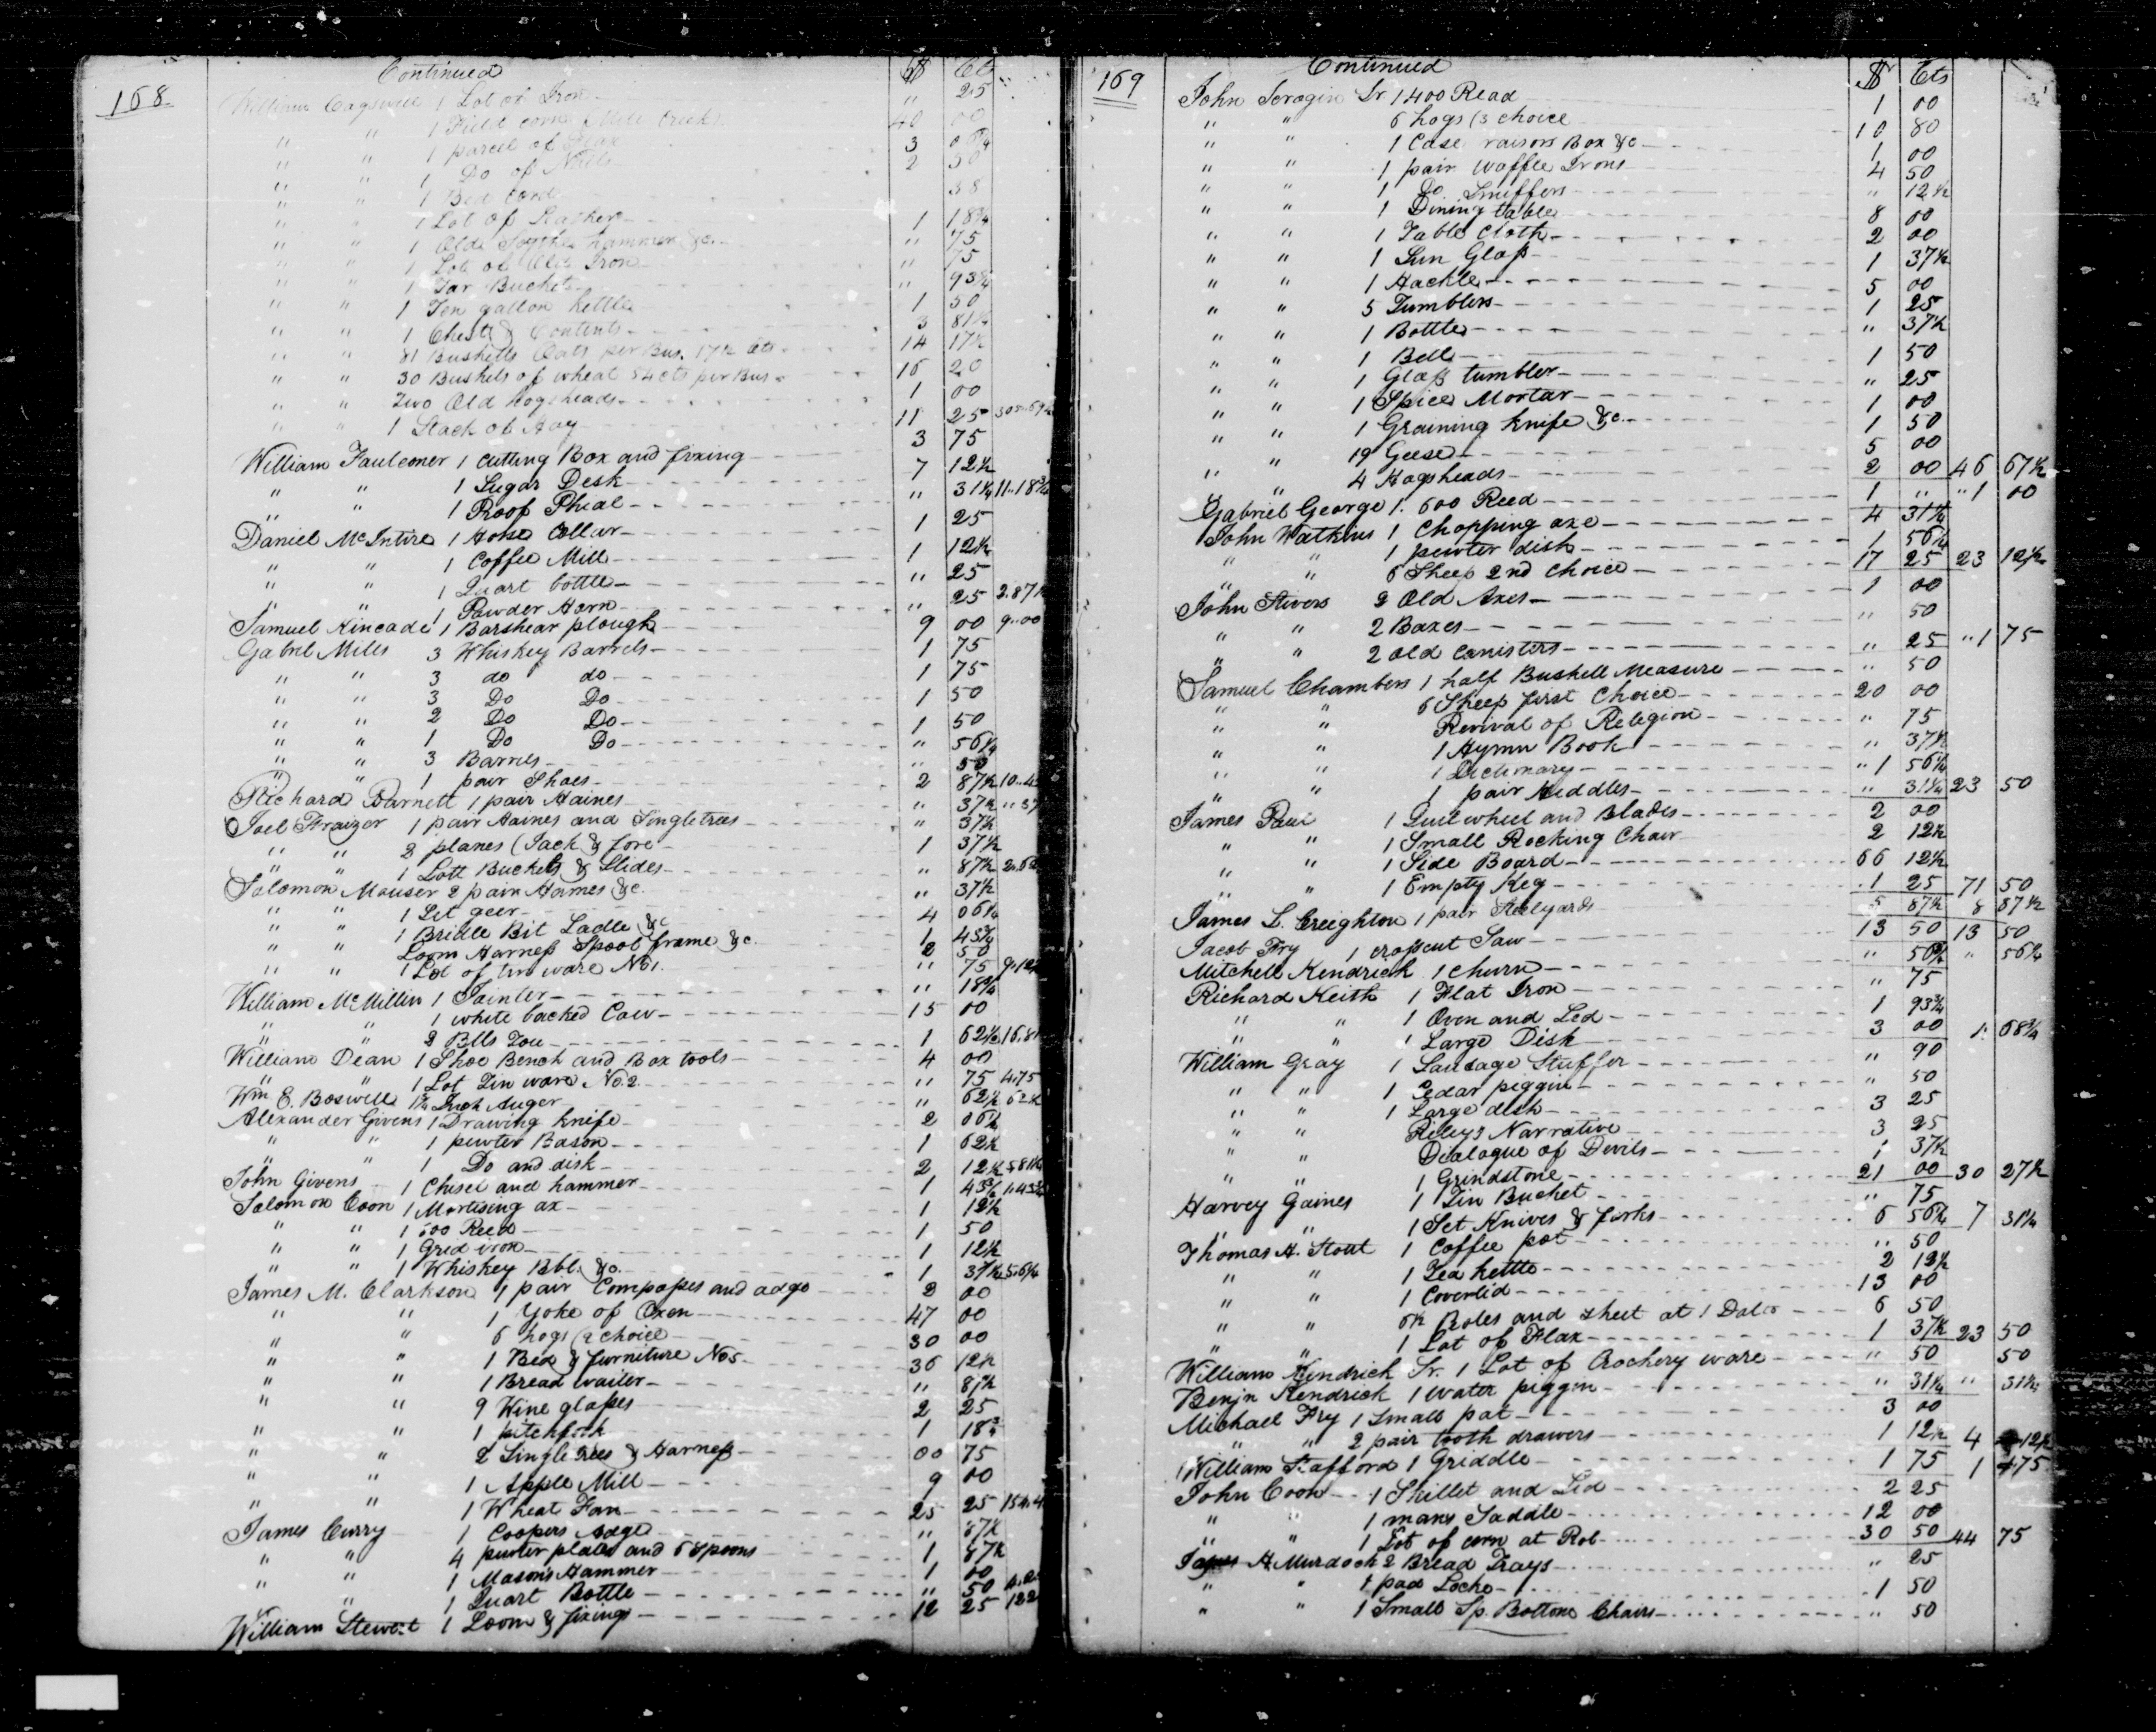 168
Continued $ Cts
William Cogswell 1 Lot of Iron " 25
" " 1 Field corn Mill Creek 40 00
" " 1 parcel of Flax 3 06¼
" " 1 Do of Nails 2 50
" " 1 Bed Cord 38
" " 1 Lot of Leather 1 18¾
" " 1 Old Scythe hammer &c. " 75
" " 1 Lot of Old Iron " 75
" " 1 Tar Bucket " 93¾
" " 1 Ten gallon kettle 1 50
" " 1 Chest & Contents 3 81¼
" " 81 Bushells Oats per Bus. 17½ cts 14 17½
" " 30 Bushels of wheat 54 cts per Bus 16 20
" " Two Old hogsheads 1 00
" " 1 Stack of Hay 11 25
William Faulconer 1 Cutting Box and fixing 3 75
" " 1 Sugar Desk 7 12½
" " 1 Proof Phial " 31¼ 11.18¾
Daniel McIntire 1 Horse Collar 1 25
" " 1 Coffee Mill 1 12½
" " 1 Quart bottle " 25
" " 1 Powder Horn " 25 2.87½
Samuel Kincade 1 Barshear plough 9 00 9.00
Gabriel Mills 3 Whiskey Barrels 1 75
" " 3 do do 1 75
" " 3 Do Do 1 50
" " 2 Do Do 1 50
" " 1 Do Do " 56¼
" " 3 Barrels " 50
" " 1 pair Shoes 2 87½
Richard Barnett 1 pair Haines " 37½ " 37
Joel Fraizer 1 pair Haines and Singletrees " 37½
" " 2 planes (Jack & fore 1 37½
" " 1 Lott Buckets & Slides " 87½ 2.62
Solomon Mouser 2 pair Hames &c. " 37½
" " 1 Set geer 4 06¼
" " 1 Bridle Bit Ladle &c 1 43¾
" " Loom Harness Spool frame &c. 2 50
" " 1 Lot of tin ware No 1. " 75 9.12½
William McMillin 1 Jointer " 18¾
" " 1 white backed Cow 15 00
" " 2 Blls Tou 1 62½ 16.81
William Dean 1 Shoe Bench and Box tools 4 00
" " 1 Lot Tin ware No. 2 " 75 4.75
Wm E. Boswell 1¼ Inch Auger " 62½ 62½
Alexander Givens 1 Drawing knife 2 06¼
" " 1 pewter Bason 1 62½
" " 1 Do and dish 2 12½ 5.81¼
John Givens 1 Chisel and hammer 1 43¾ 1.43¾
Solomon Coon 1 Mortising ax 1 12½
" " 1 600 Reed 1 50
" " 1 Grid iron 1 12½
" " 1 Whiskey Bbl. &c. 1 31¼ 5.6¼
James M. Clarkson 1 pair Compasses and adge 2 00
" " 1 Yoke of Oxen 47 00
" " 6 hogs (2 choice 30 00
" " 1 Bed & furniture No 5 36 12½
" " 1 Bread waiter " 87½
" " 9 Wine glasses 2 25
" " 1 pitchfork 1 18¾
" " 2 Single Trees & Harness 00 75
" " 1 Apple Mill 9 00
" " 1 Wheat Fan 25 25
James Curry 1 Coopers Adge " 87½
" " 4 pewter plates and 6 Spoons 1 87½
" " 1 Masons Hammer 1 00
" " 1 Quart Bottle " 50
William Stewart 1 Loom & fixings 12 25
169
Continued $ Cts
John Scrogin Sr. 1 400 Read 1 00
" " 6 hogs (3 choice 10 80
" " 1 Case raisors Box &c 1 00
" " 1 pair waffle Irons 4 50
" " 1 Do Snuffers " 12½
" " 1 Dining table 8 00
" " 1 Table Cloth 2 00
" " 1 Sun Glass 1 37½
" " 1 Hackle 5 00
" " 5 Tumblers 1 25
" " 1 Bottle " 37½
" " 1 Bell 1 50
" " 1 Glass tumbler " 25
" " 1 Spice Mortar 1 00
" " 1 Graining knife &c. 1 50
" " 19 Geese 5 00
" " 4 Hogsheads 2 00 46 67½
Gabriel George 1. 600 Reed 1 " " 1 00
John Watkins 1 Chopping axe 4 31¼
" " 1 pewter dish 1 56¼
" " 6 Sheep 2nd Choice 17 25 23 12½
John Stivers 2 Old Axes 1 00
" " 2 Boxes " 50
" " 2 old Canisters " 25 " 1 75
Samuel Chambers 1 half Bushell Measure " 50
" " 6 Sheep first Choice 20 00
" " Revival of Religion " 75
" " 1 Hymn Book " 37½
" " 1 Dictionary " 1 56¼
" " 1 pair Heddles " 31¼ 23 50
James Paul 1 Quil wheel and Blades 2 00
" " 1 Small Rocking Chair 2 12½
" " 1 Side Board 66 12½
" " 1 Empty Keg 1 25 71 50
James L. Creighton 1 pair Steelyards 5 87½ 8 87½
Jacob Fry 1 crosscut Saw 13 50 13 50
Mitchell Kendrick 1 churn " 56¼ " 56¼
Richard Keith 1 Flat Iron " 75
" " 1 Oven and Led 1 93¾
" " 1 Large Dish 3 00 1. 68¾
William Gray 1 Sausage Stuffer " 90
" " 1 Cedar piggin " 50
" " 1 Large dish 3 25
" " Rileys Narrative 3 25
" " Dialogue of Devils 1 37½
" " 1 Grindstone 21 00 30 27½
Harvey Gaines 1 Tin Bucket " 75
" " 1 Set Knives & forks 6 56¼ 7 31¼
Thomas H. Stout 1 Coffee pot " 50
" " 1 Tea kettle 2 12½
" " 1 Coverlid 13 00
" " 6½ Boles and sheet at 1 Dolar 6 50
" " 1 Lot of Flax 1 37½ 23 50
William Kendrick Sr. 1 Lot of Crockery ware " 50 50
Benjn Kendrick 1 water piggin " 31¼ " 31¼
Michael Fry 1 Small pot 3 00
" " 2 pair tooth drawers 1 12½ 4 12½
William Stafford 1 Griddle 1 75 1 75
John Coon 1 Skillet and Led 2 25
" " 1 mans Saddle 12 00
" " 1 Lot of corn at Rob 30 50 44 75
James H. Murdock 2 Bread Trays " 25
" " 1 pad Locke 1 50
" " 1 Small Sp. Bottom Chairs " 50